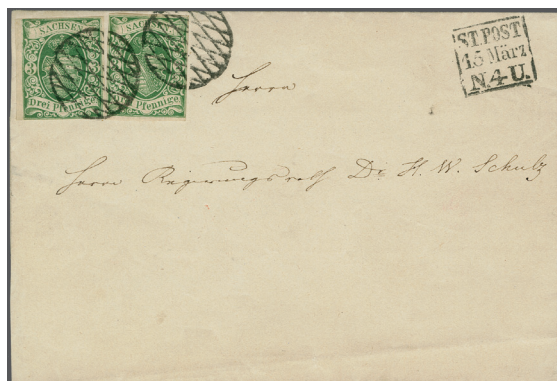 SACHSEN SACHSEN
Drei Pfennige Pfennige
ST. POST
15 März
N. 4 U.
Herrn
Herrn Regierungsrath Dr. H. W. Schulz